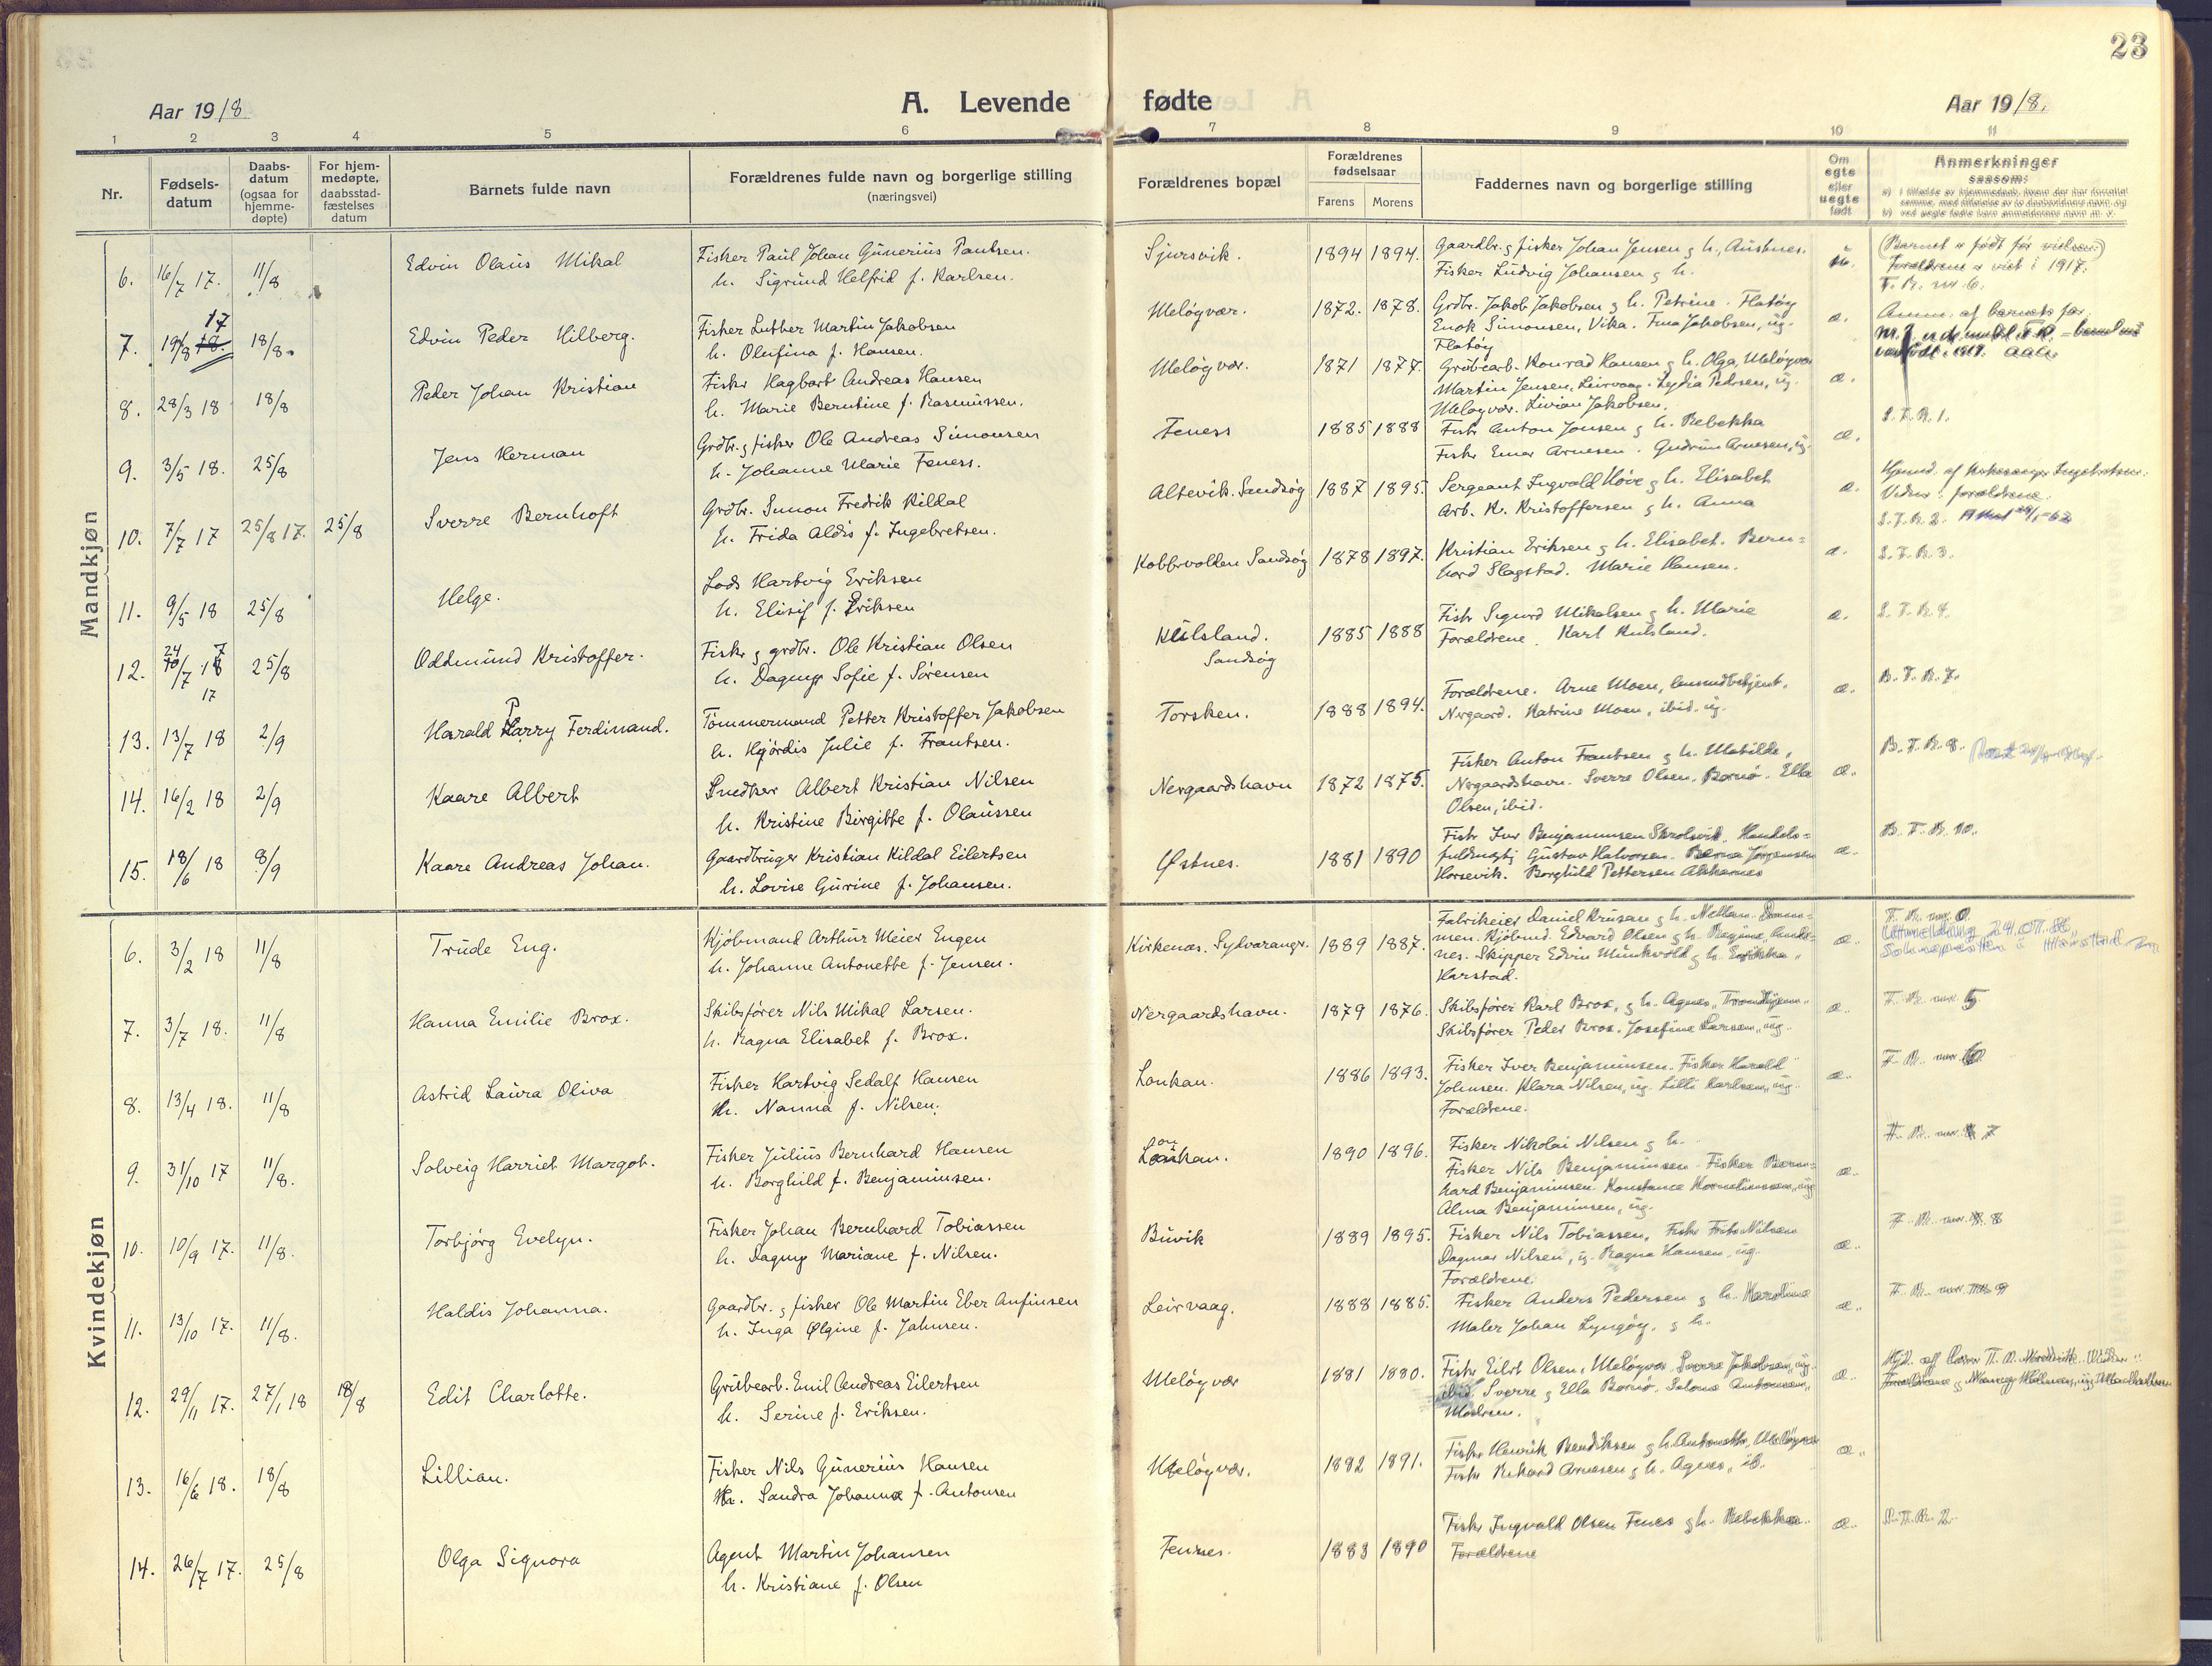 23
Aar 1918. A. Levende fødte Aar 1918.
1 2 3 4 5 6 7 8 9 10 11
Nr. Fødsels-datum Daabs-datum (ogsaa for hjemme-døpte) For hjem-medøpte, daabsstad-fæstelses datum Barnets fulde navn Forældrenes fulde navn og borgerlige stilling (næringsvei) Forældrenes bopæl Forældrenes fødselsaar Farens Morens Faddernes navn og borgerlige stilling Om egte eller uegte født Anmerkninger saasom:
Mandkjøn
6. 16/7 17. 11/8 Edvin Olaus Mikal Fisker Paul Johan Gunerius Paulsen. Sjursvik. 1894 1894. Gaardbr. g fisker Johan Jensen g h., Austnes. (Barnet er født før vielsen)
h. Sigrund Helfrid f. Karlsen. Fisker Ludvig Johansen g h. Forældrene er viet i 1917.
T. R. nr 6.
7. 19/8 17 18. 18/8. Edvin Peder Hilberg. Fisker Luther Martin Jakobsen Meløyvær. 1872. 1878. Grdbr. Jakob Jakobsen g h. Petrine. Flatøy æ. Anm. af barnets far.
h. Olufina f. Hansen. Enok Simonsen, Vika. Trua Jakobsen, ug.
Flatøy
8. 28/3 18 18/8 Peder Johan Kristian Fisker Hagbart Andreas Hansen Meløyvær. 1871 1877. Grubearb. Konrad Hansen g h. Olga, Meløyvær æ.
h. Marie Berntine f. Rasmussen. Martin Jensen, Leirvaag. Lydia Pedersen, ug.
Meløyvær. Livian Jakobsen.
9. 3/5 18. 25/8 Jens Herman Grdbr. g fisker Ole Andreas Simonsen Feness 1885 1888 Fisk. Anton Jonsen g h. Rebekka æ. S. T. R. 1.
h. Johanne Marie Feness. Fisk. Einar Arnesen. Gudrun Arnesen, ug.
10. 7/7 17 25/8 17. 25/8 Sverre Bernhoft Grdbr. Simon Fredrik Kildal Altevik. Sandsøy 1887 1895. Sergeant Ingvald Høve g h. Elisabet æ. Hjemd. af kirkesanger Ingebretsen.
h. Frida Aldis f. Ingebretsen. Arb. K. Kristoffersen g h. Anna Vidner: forældrene.
S. T. R. 2.
11. 9/5 18 25/8 Helge. Lods Hartvig Eriksen Kobbvolden Sandsøy 1878 1897. Kristian Eriksen g h. Elisabet. Bern= æ. S. T. R. 3.
h. Elisif f. Eriksen hard Slagstad. Marie Hansen.
12. 24/7 17 25/8 Oddmund Kristoffer. Fiskr g grdbr. Ole Kristian Olsen Kulsland. Sandsøy 1885 1888 Fiskr Sigurd Mikalsen g h. Marie æ. S. T. R. 4.
h. Dagny Sofie f. Sørensen Forældrene. Karl Kulsland.
13. 13/7 18 2/9 Harald Parry Ferdinand. Tømmermand Petter Kristoffer Jakobsen Torsken. 1888 1894. Forældrene. Arne Moen, lensmdbetjent. æ. B. T. R. 7.
h. Hjørdis Julie f. Frantsen. Nergaard. Katrine Moen, ibid. ug.
14. 16/2 18 2/9 Kaare Albert Snedker Albert Kristian Nilsen Nergaardshavn 1872 1875. Fisker Anton Frantsen g h. Matilde, æ. B. T. R. 8.
h. Kristine Birgitte f. Olaussen Nergaardshavn. Sverre Olsen. Bornø. Ella
Olsen, ibid.
15. 18/6 18 8/9 Kaare Andreas Johan. Gaardbruger Kristian Kildal Eilertsen Østnes. 1881 1890 Fisk Iver Benjaminsen Skrolsvik. Handels= æ. B. T. R. 10.
h. Lovise Gurine f. Johansen. fuldmegtig Gustav Halvorsen. Berna Jørgensen
Horsevik. Borghild Pettersen
Kvindekjøn
6. 3/2 18 11/8 Trude Eng. Kjøbmand Arthur Meier Engen Kirkenæs. Sydvaranger. 1889 1887. Fabrikeier Daniel g h. æ.
h. Johanne Antonette f. Jensen. Kjøbmd. Edvard Olsen g h.
Skipper Edvin Munkvold g h.
Harstad.
7. 3/7 18. 11/8 Hanna Emilie Brox. Skibsfører Nils Mikal Larsen. Nergaardshavn. 1879 1876. Skibsfører Karl Brox, g h. Agnes, Trondhjem. æ. T. R. nr. 5
h. Ragna Elisabet f. Brox. Skibsfører Peder Brox. Josefine Larsen, ug.
8. 13/4 18. 11/8 Astrid Laura Oliva Fisker Hartvig Sedalf Hansen Lonkan. 1886 1893. Fisker Iver Benjaminsen. Fisker Harald æ. T. R. nr. 6
h. Nanna f. Nilsen. Johnsen. Klara Nilsen, ug. Lilli Karlsen, ug.
Forældrene.
9. 31/10 17 11/8. Solveig Harriet Margot. Fisker Julius Bernhard Hansen Lonkan. 1890 1896. Fisker Nikolai Nilsen g h. æ. T. R. nr. 7
h. Borghild f. Benjaminsen. Fisker Nils Benjaminsen. Fisker Bern=
hard Benjaminsen. Konstance
Alma Benjaminsen, ug.
10. 10/9 17. 11/8. Torbjørg Evelyn. Fisker Johan Bernhard Tobiassen Buvik 1889 1895. Fisker Nils Tobiassen, Fisk Frits Nilsen æ. T. R. nr. 8
h. Dagny Mariane f. Nilsen. Dagmar Nilsen, ug. Ragna Hansen, ug.
Forældrene.
11. 13/10 17. 11/8. Haldis Johanna. Gaardbr. g fisker Ole Martin Eber Anfinsen Leirvaag. 1888 1885. Fisker Anders Pedersen g h. Karoline æ. T. R. nr. 9
h. Inga Ølgine f. Jahnsen. Maler Johan Lyngøy. g h.
12. 29/11 17. 27/1 18 18/8 Edit Charlotte. Grubearb. Emil Andreas Eilertsen Meløyvær 1881 1880. Fisk Eilert Olsen, Meløyvær. Sverre Jakobsen, ug. æ.
h. Serine f. Eriksen. ibid. Sverre g Ella Bornø.
Moderen.
13. 16/6 18. 18/8 Lillian. Fisker Nils Gunerius Hansen Meløyvær. 1882 1891. Fiskr Henrik Bendiksen g h. Antonette, Meløyvær æ.
h. Sandra Johanna f. Antonsen Fiskr Rikard Arnesen g h. Agnes, ib.
14. 26/7 17. 25/8 Olga Signora Agent Martin Johansen Fenes. 1883 1890 Fiskr Ingvald Olsen Fenes g h. Rebekka. æ. S. T. R. 2.
h. Kristiane f. Olsen Forældrene